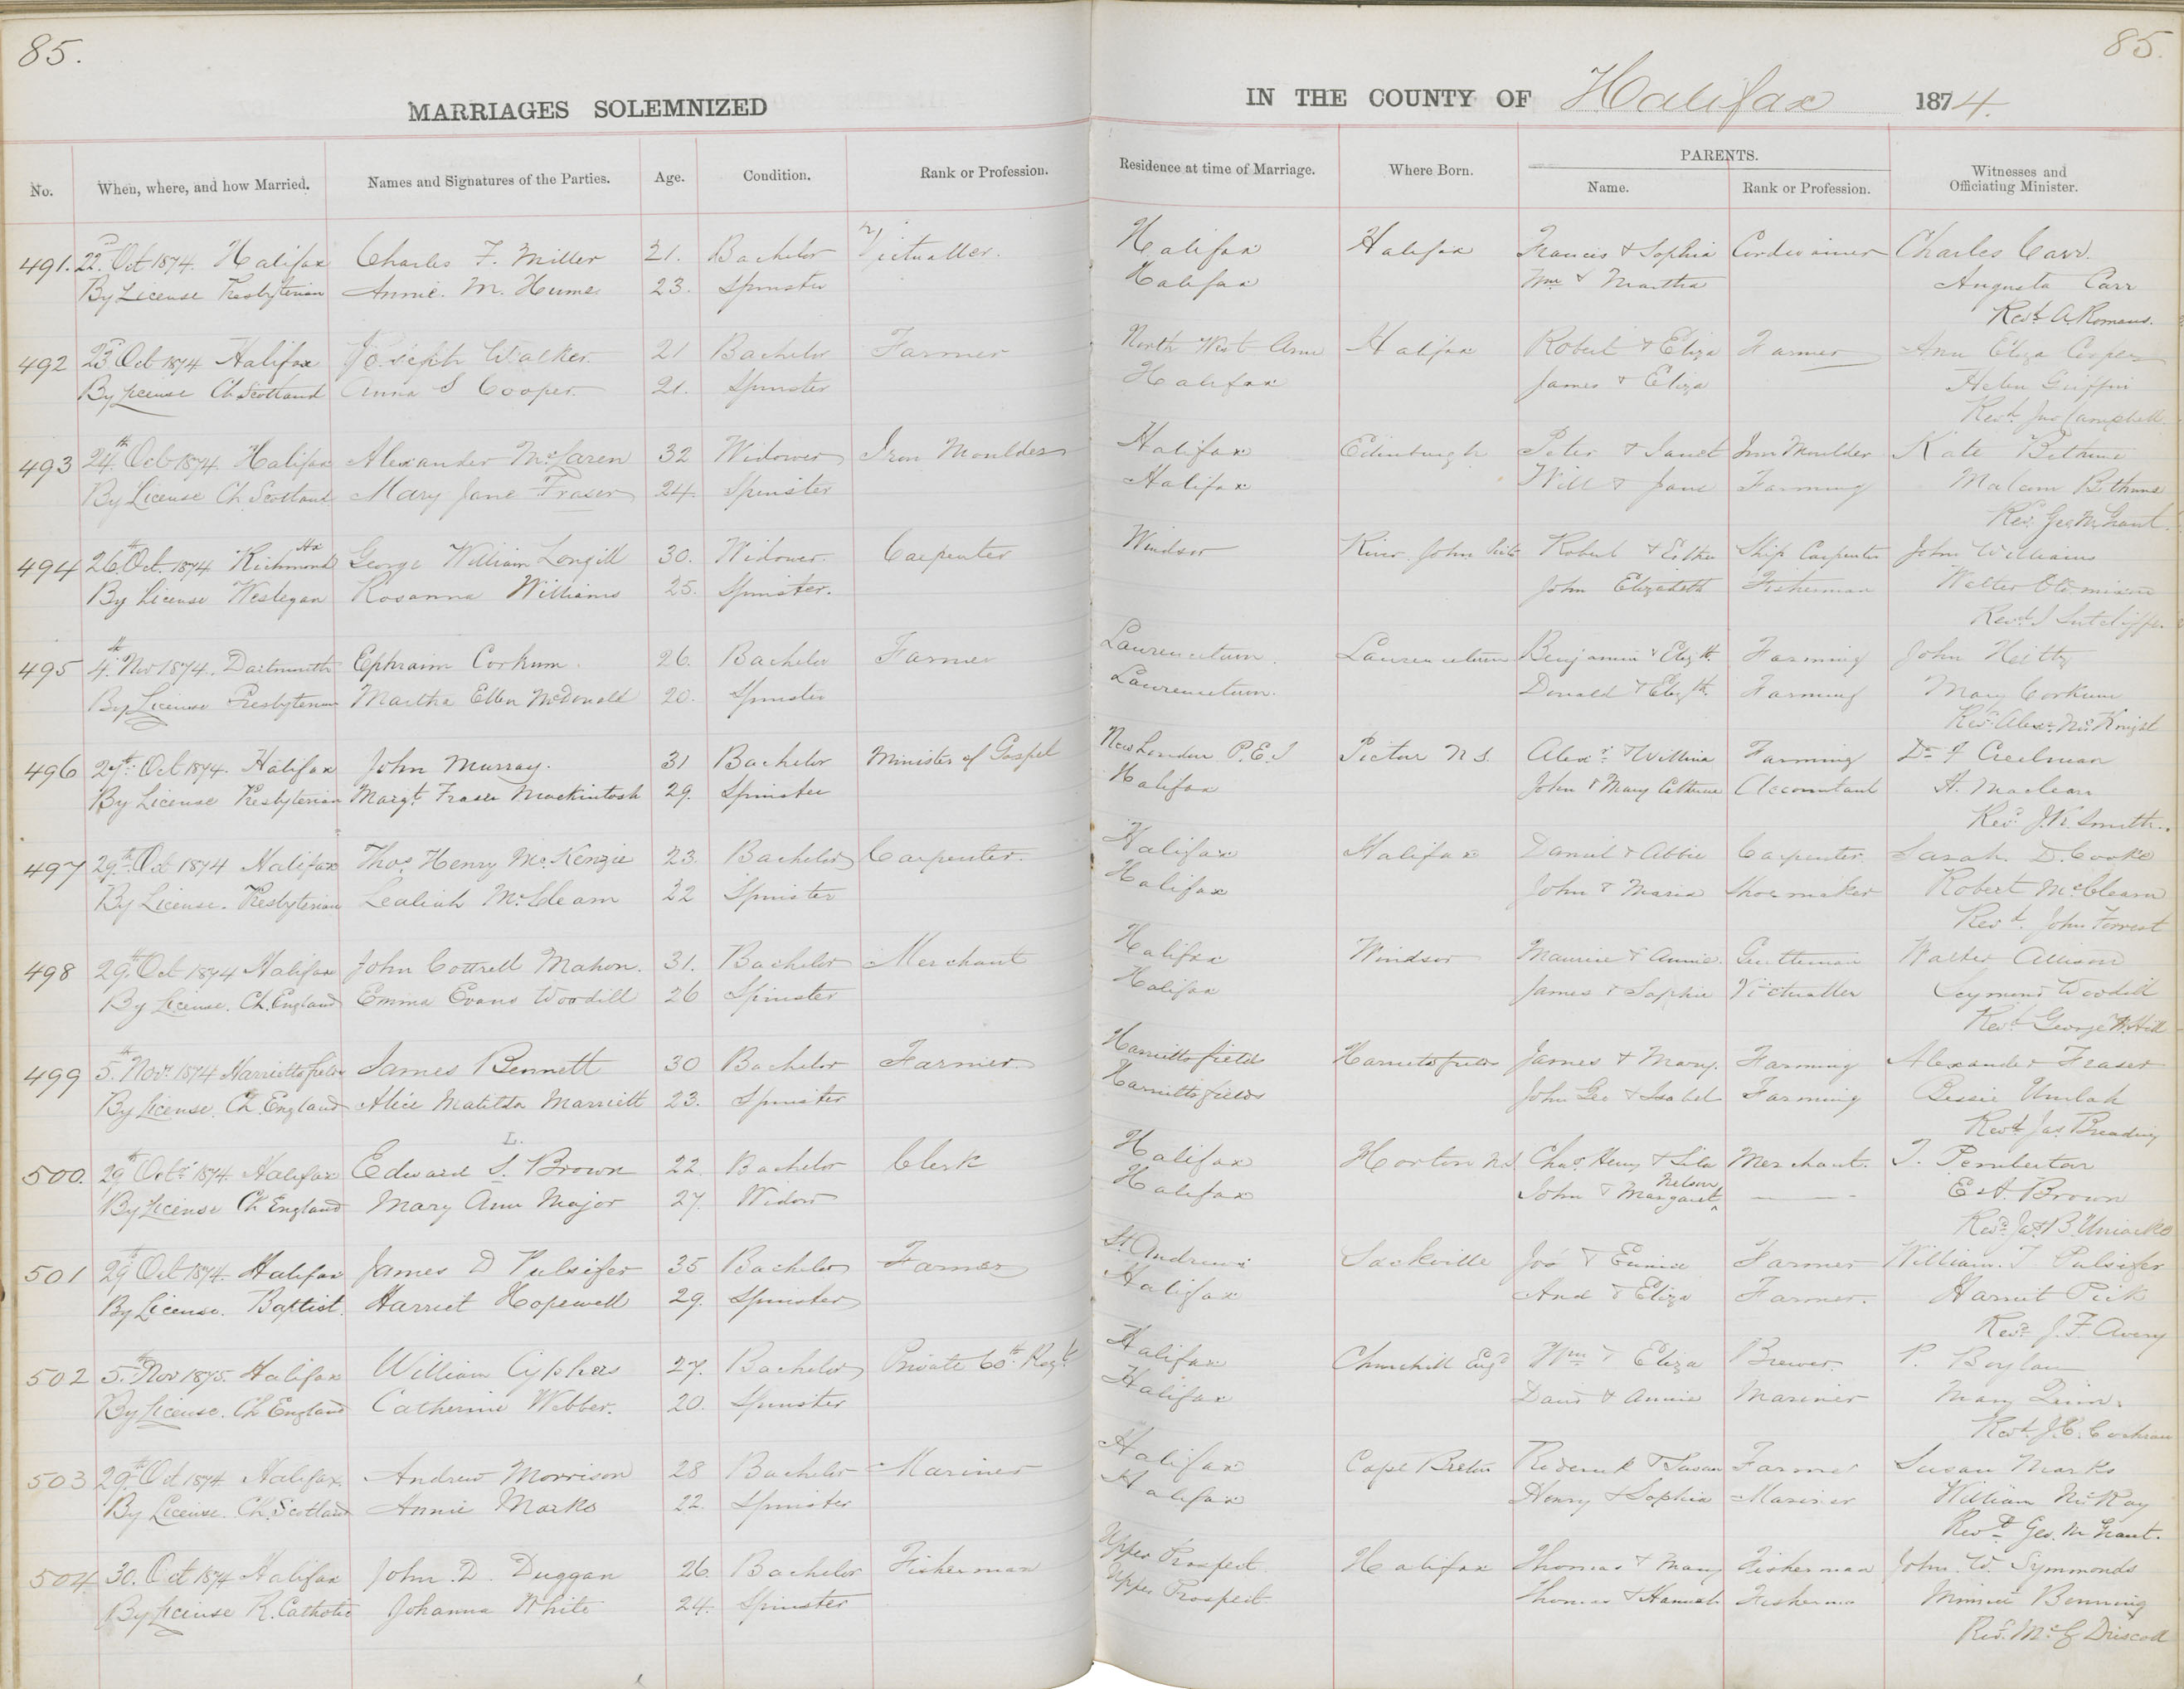 85.
85.
MARRIAGES SOLEMNIZED
IN THE COUNTY OF Halifax 1874.
No. When, where, and how Married. Names and Signatures of the Parties. Age. Condition. Rank or Profession. Residence at time of Marriage. Where Born. PARENTS. Name. Rank or Profession. Witnesses and Officiating Minister.
491. 22d Oct 1874. Halifax Charles F. Miller 21. Bachelor Victualler. Halifax Halifax Francis & Sophia Cordwainer Charles Carr.
By License Presbyterian Annie. M. Hume 23. Spinster Halifax Wm & Martha Augusta Carr
Revd. A. Romans.
492 23d Oct 1874 Halifax Joseph Walker. 21 Bachelor Farmer North West Arm Halifax Robert & Eliza Farmer Ann Eliza Cooper
By License Ch Scotland Anna S Cooper. 21. Spinster Halifax James & Eliza Helen Griffin
Revd. Jno Campbell
493 24th Oct 1874. Halifax Alexander McLaren 32 Widower Iron Moulder Halifax Edinburgh Peter & Janet Iron Moulder Kate Bethune
By License Ch Scotland Mary Jane Fraser 24. Spinster Halifax Will & Jane Farming Bethune
Rev. Geo M Grant.
494 26th Oct. 1874 Richmond Hx George William Longill 30. Widower. Carpenter Windsor River John Robert & Esther Ship Carpenter John Williams
By License Wesleyan Rosanna Williams 25. Spinster. John Elizabeth Fisherman Walter
Revd. J Sutcliffe.
495 4th Nov 1874. Dartmouth Ephraim Corkum. 26. Bachelor Farmer Lawrencetown. Lawrencetown Benjamin & Elizth. Farming John
By License Presbyterian Martha Ellen McDonald 20. Spinster Lawrencetown. Donald & Elizth. Farming Mary Corkum
Rev. Alexr. McKnight
496 27th Oct 1874. Halifax John Murray. 31 Bachelor Minister of Gospel New London P.E.I Pictou N.S. Alexr. & Willina Farming Dr. Creelman
By License Presbyterian Margt. Fraser Mackintosh 29. Spinster Halifax John & Mary Catherine Accountant H. Maclean
Revd. J.K. Smith.
497 29th Oct 1874 Halifax Thos. Henry McKenzie 23. Bachelor Carpenter. Halifax Halifax Daniel & Abbie Carpenter. Sarah D. Cooke
By License. Presbyterian Lealiah McCleam 22 Spinster Halifax John & Maria Shoemaker Robert McCleam
Revd. John Forrest
498 29th Oct 1874 Halifax John Cottrell Mahon. 31. Bachelor Merchant Halifax Windsor Maurice & Annie. Gentleman Walter Allison
By License. Ch. England Emma Evans Woodill 26 Spinster Halifax James & Sophie Victualler Seymour Woodill
Revd. George W. Hill
499 5th Novr. 1874 Harrietsfield James Bennett 30 Bachelor Farmer Harriettsfields Harrietsfield James & Mary. Farming Alexander Fraser
By License. Ch. England Alice Matilda Marriett 23. Spinster Harriettsfields John Geo & Isabel Farming Bessie Umlah
Revd. Jas. Breading
L.
500. 29th Octr. 1874. Halifax Edward S. Brown 22. Bachelor Clerk Halifax Horton N.S Chas. Henry & Lila Merchant. T. Pemberton
By License Ch England Mary Ann Major 27. Widow Halifax John & Margaret Nelson — — - E.A. Brown
Revd. Jas. B Uniacke
501 29th Oct 1874. Halifax James D Pulsifer 35 Bachelor Farmer St. Andrews Sackville Jos & Eunice Farmer William. T Pulsifer
By License. Baptist. Harriet Hopewell 29. Spinster Halifax And & Eliza Farmer. Harriet Peck
Revd. J.F. Avery
502 5th Nov 1875. Halifax William Cyphers 27. Bachelor Private 60th Regt. Halifax Churchill Engd Wm & Eliza Brewer. P. Boylan
By License. Ch England Catherine Webber. 20. Spinster Halifax David & Annie Mariner Mary Quinn.
Revd. J.C. Cochran
503 29th Oct 1874. Halifax. Andrew Morrison 28 Bachelor Mariner Halifax Cape Breton Roderick & Susan Farmer Susan Marks
By License. Ch. Scotland Annie Marks 22. Spinster Halifax Henry & Sophia Mariner William McKay
Revd. Geo. M Grant.
504 30. Oct 1874 Halifax John. D. Duggan 26. Bachelor Fisherman Upper Prospect. Halifax Thomas & Mary Fisherman John. W. Symmonds
By License R. Catholic Johanna White 24. Spinster Upper Prospect Thomas & Hannah Fisherman Minnie Benning
Driscoll